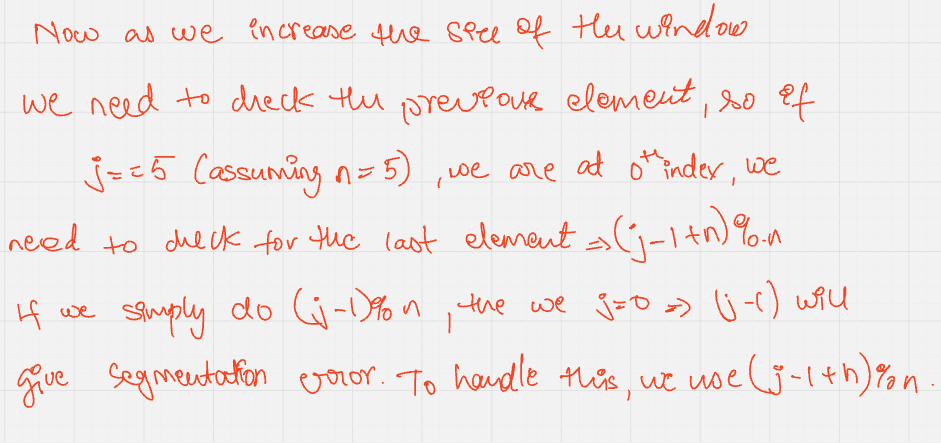 Now as we increase the size of the window
we need to check the previous element, so if
j==5 (assuming n=5), we are at 0th index, we
need to check for the last element ⇒ (j-1+n)%n
If we simply do (j-1)%n, the we j=0 ⇒ (j-1) will
give segmentation error. To handle this, we use (j-1+n)%n.